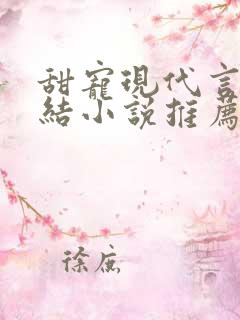 甜寵現代言
結小說推薦
徐庶